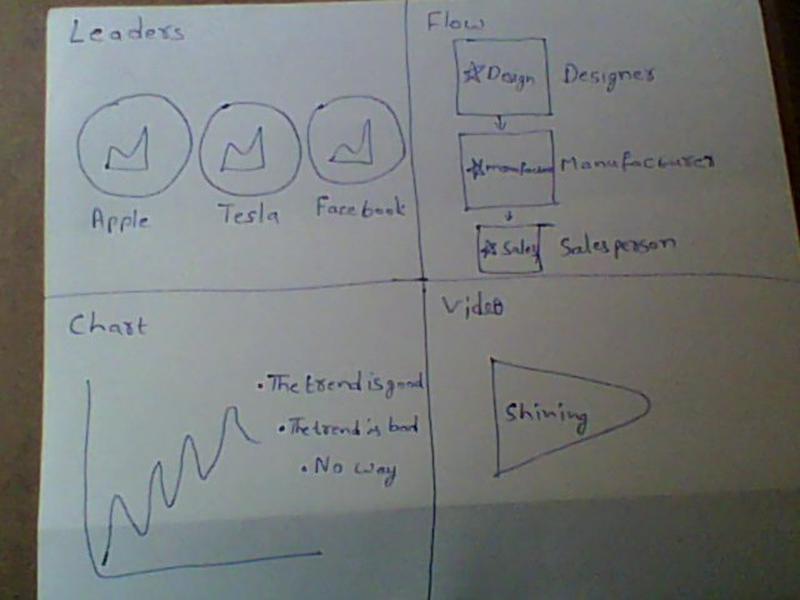 Leaders
Apple
Tesla
Facebook
Flow
Design
Designer
manufacture
Manufacturer
Sales
Salesperson
Chart
• The trend is good
• The trend is bad
• No way
Video
Shining